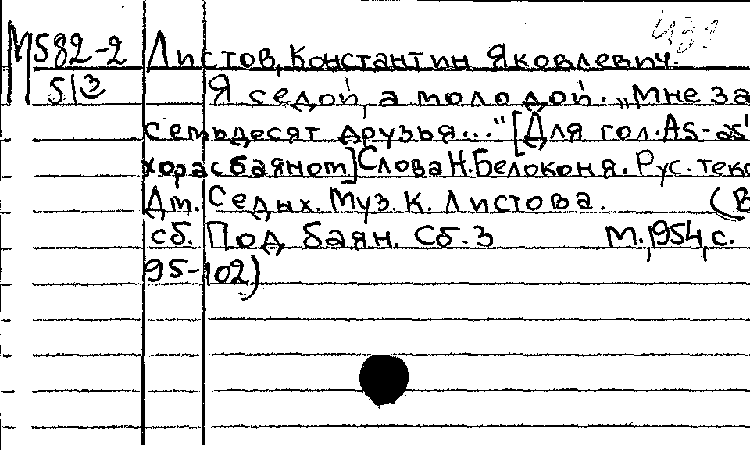 М582-2 Листов, Константин Яковлевич.
513 Я седой, а молодой. „Мне за
семьдесят друзья..." [Для гол. As-as¹
хора с баяном] Слова Н. Белоконя. Рус. текс
Дм. Седых. Муз. К. Листова. (В
сб. Под баян. Сб. 3 М., 1954, с.
95-102)